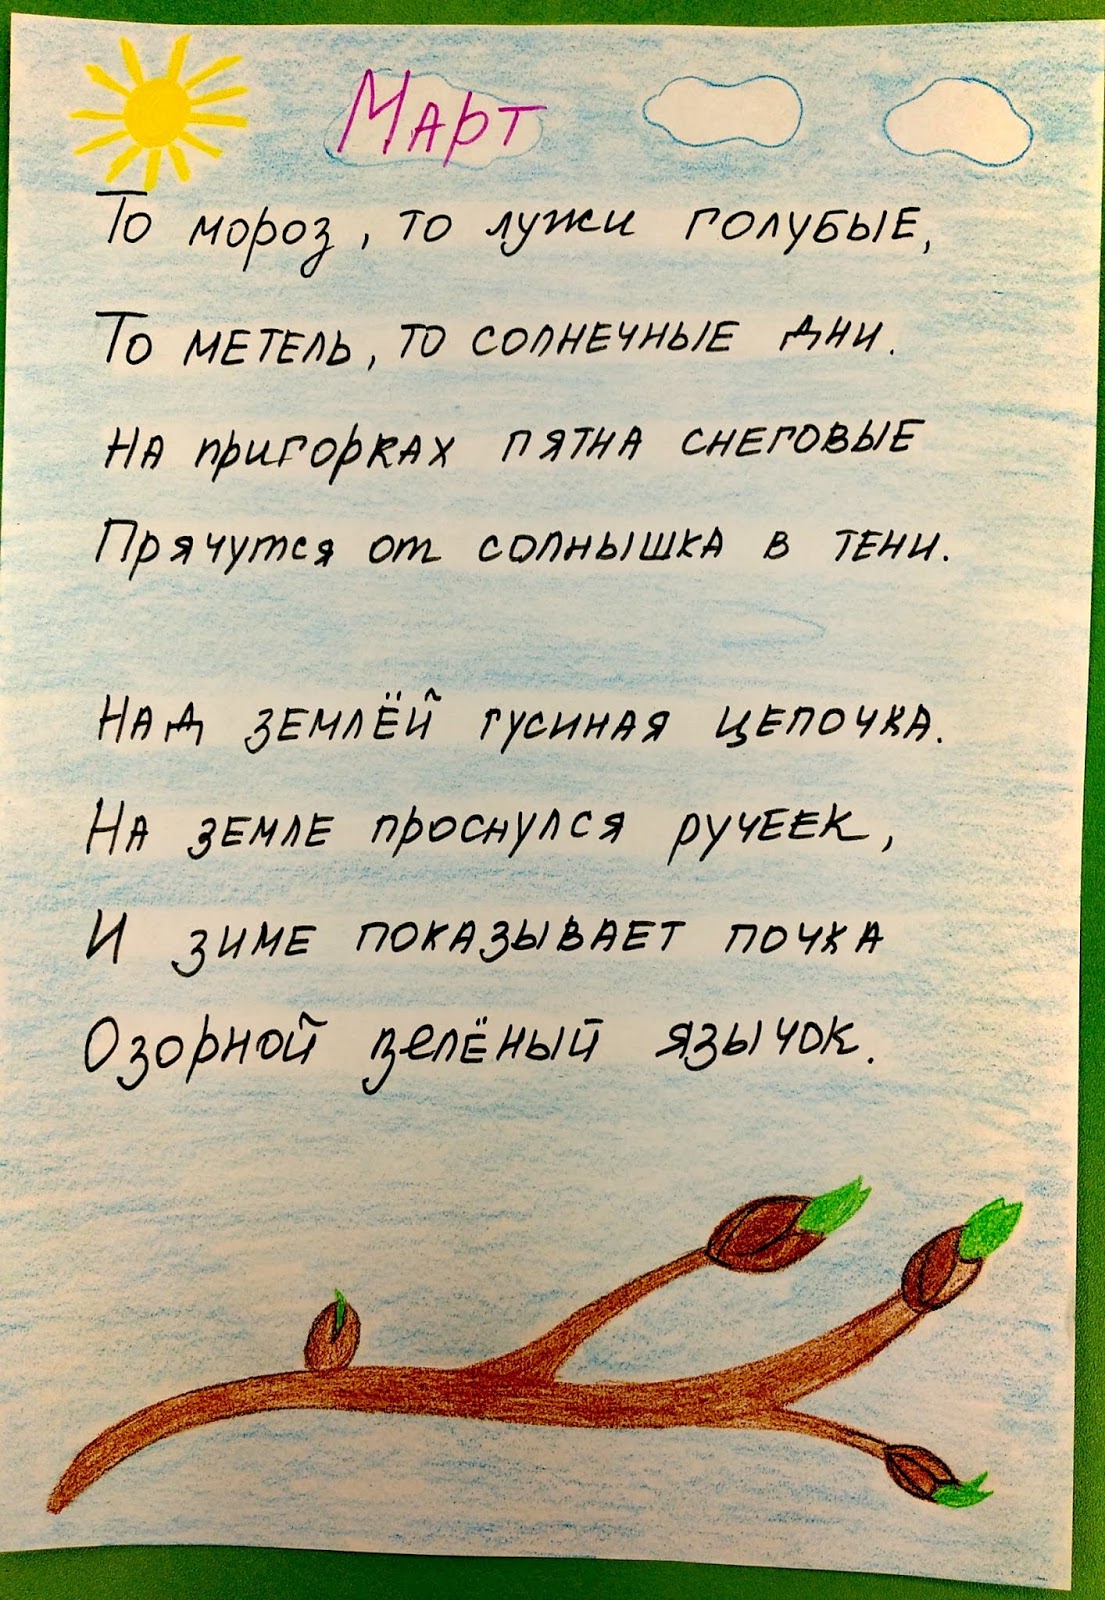 Март
То мороз, то лужи голубые,
То метель, то солнечные дни.
На пригорках пятна снеговые
Прячутся от солнышка в тени.
Над землёй гусиная цепочка.
На земле проснулся ручеек,
И зиме показывает почка
Озорной зелёный язычок.